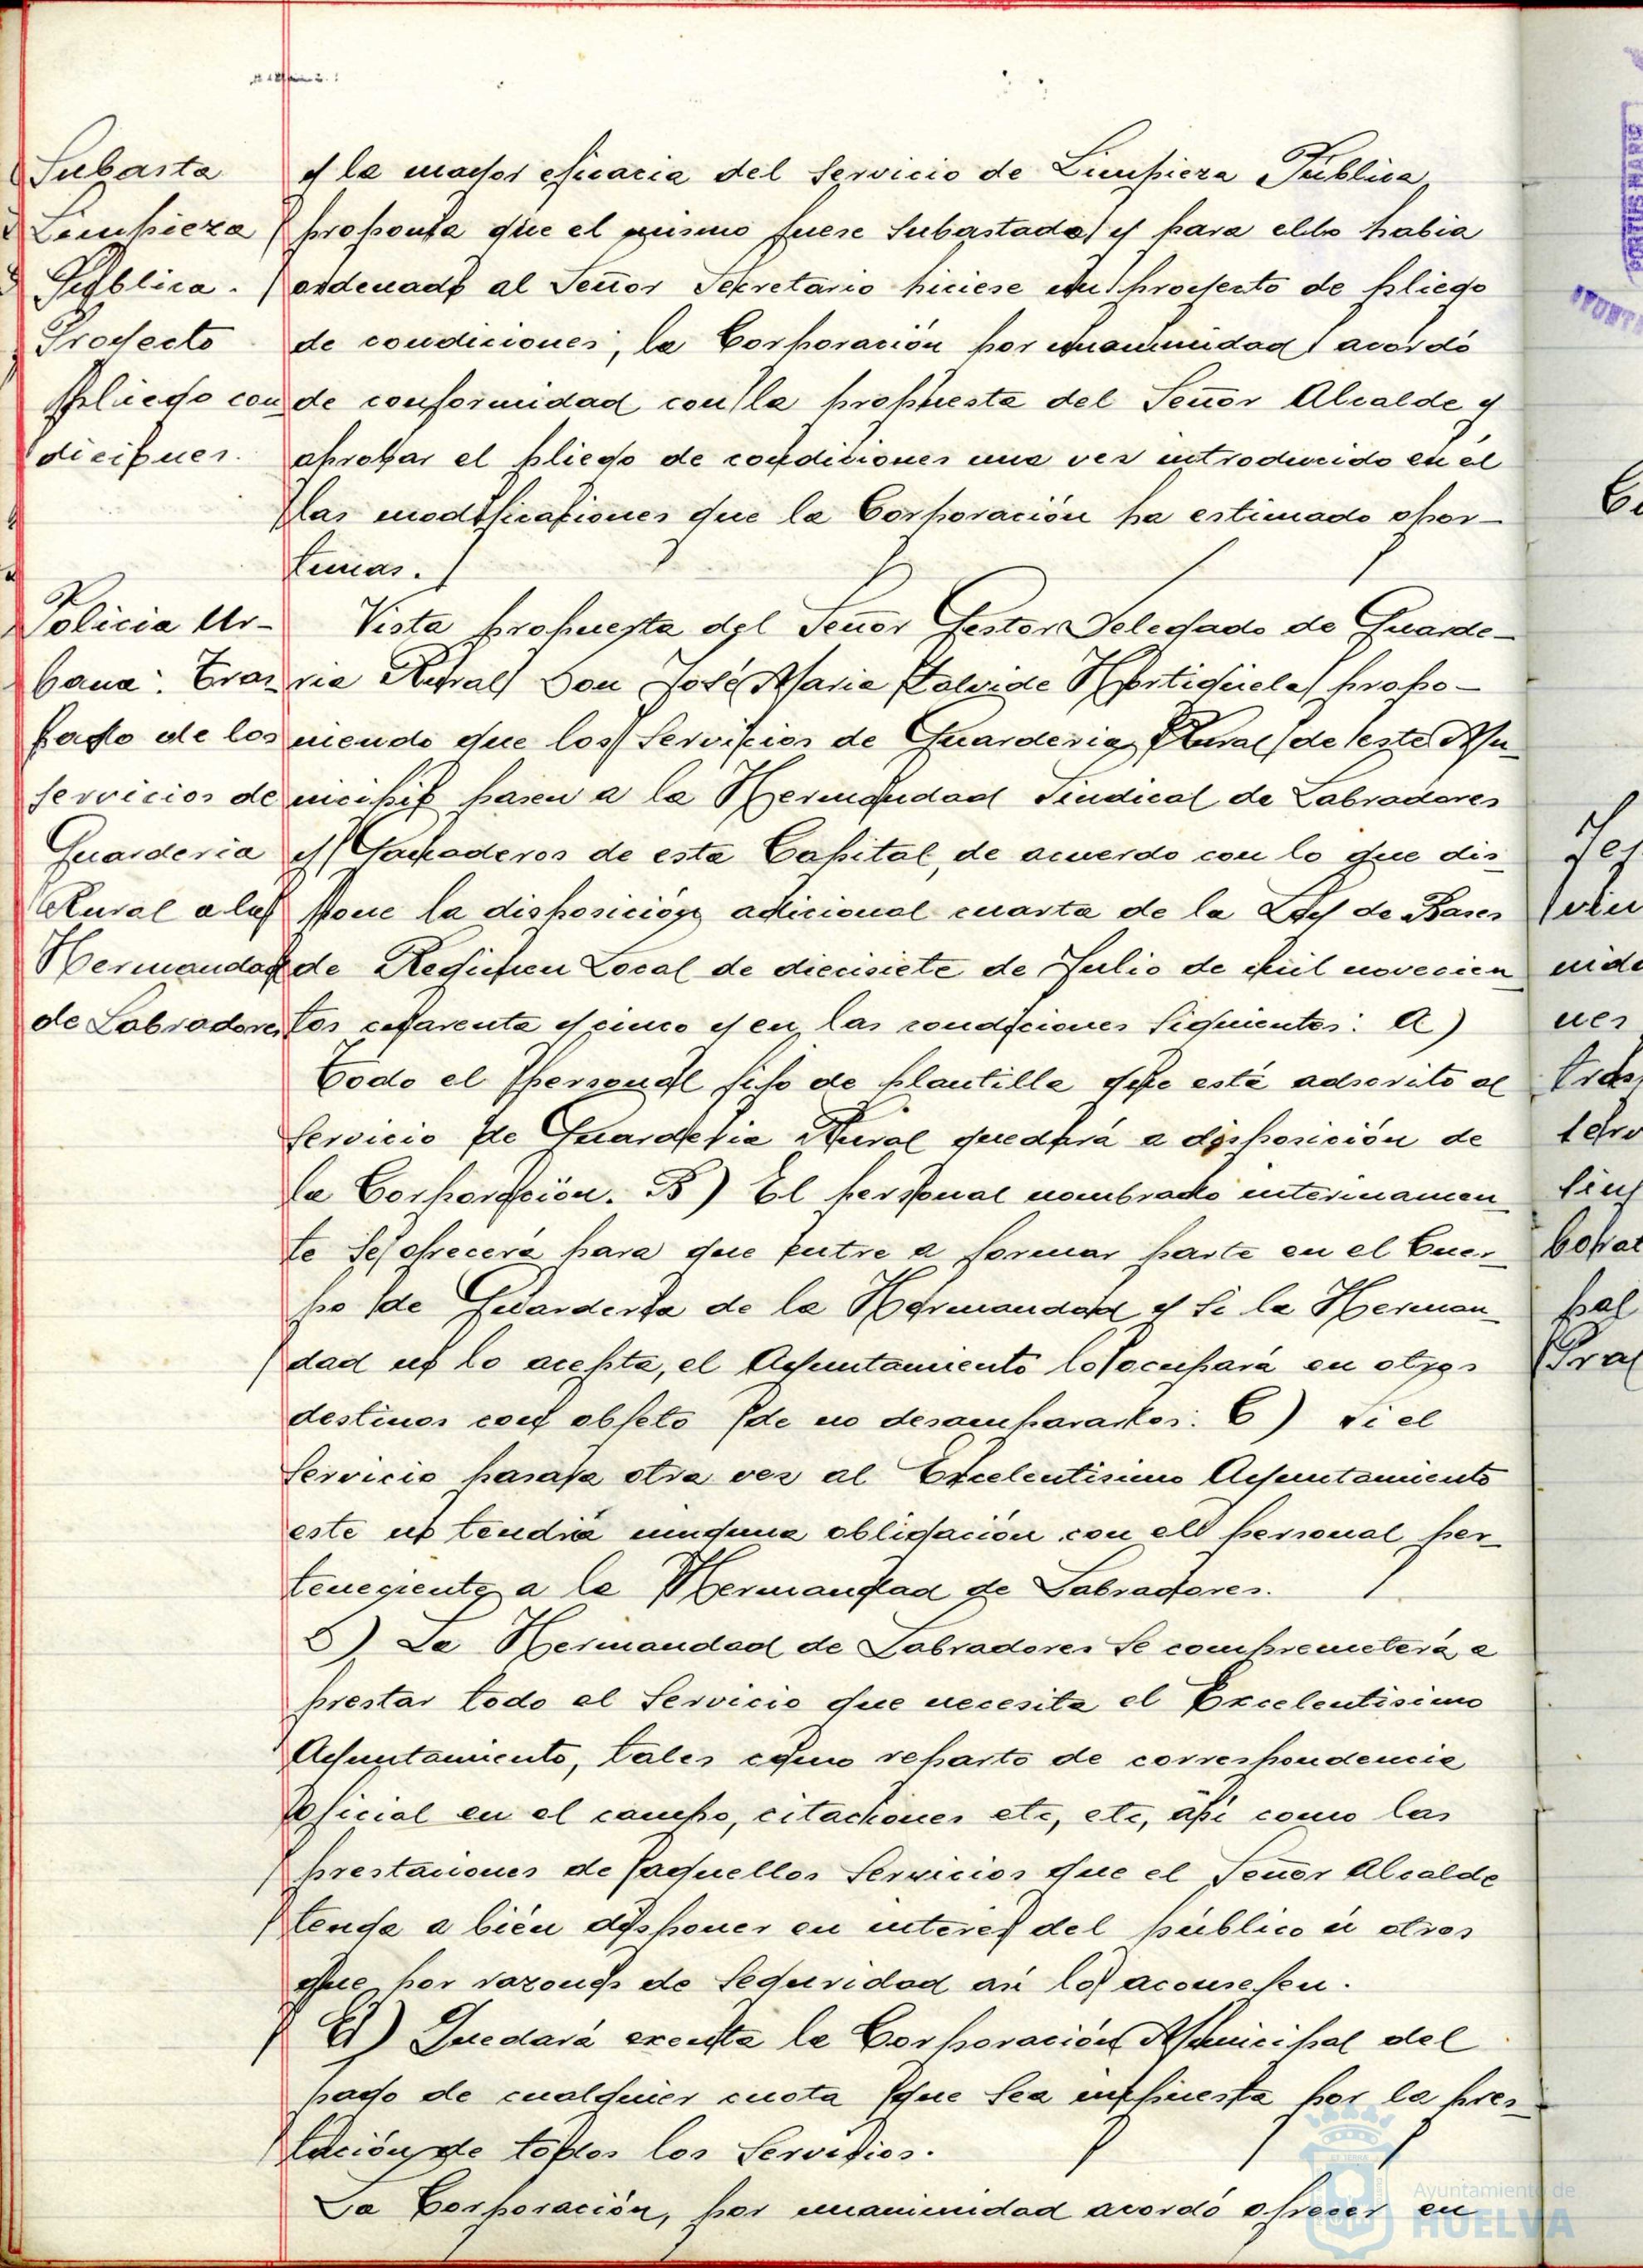 Subasta
Limpieza
Pública.
Proyecto
pliego con
diciones.
y la mayor eficacia del Servicio de Limpieza Pública,
proponía que el mismo fuese Subastado y para ello habia
ordenado al Señor Secretario hiciese un proyecto de pliego
de condiciones; la Corporación por unanimidad acordó
de conformidad con la propuesta del Señor Alcalde y
aprobar el pliego de condiciones una vez introducido en él
las modificaciones que la Corporación ha estimado opor-
tunas.
Policia Ur-
bana: Tras
paso de los
servicios de
Guarderia
Rural a la
Hermandad
de Labradores
Vista propuesta del Señor Gestor Delegado de Guarde-
ria Rural Don José Maria Hortigüela propo-
niendo que los Servicios de Guarderia Rural de este Mu-
nicipio pasen a la Hermandad Sindical de Labradores
y Ganaderos de esta Capital, de acuerdo con lo que dis-
pone la disposición adicional cuarta de la Ley de Bases
de Regimen Local de diecisiete de Julio de mil novecien
tos cuarenta y cinco y en las condiciones Siguientes: A)
Todo el personal fijo de plantilla que esté adscrito al
Servicio de Guarderia Rural quedará a disposición de
la Corporación. B) El personal nombrado interinamen
te Se ofrecerá para que entre a formar parte en el Cuer-
po de Guarderia de la Hermandad y Si la Herman-
dad no lo acepta, el Ayuntamiento lo ocupará en otros
destinos con objeto de no desampararlos. C) Si el
Servicio pasara otra vez al Excelentisimo Ayuntamiento
este no tendrá ninguna obligación con el personal per-
teneciente a la Hermandad de Labradores.
D) La Hermandad de Labradores Se comprometerá a
prestar todo el Servicio que necesita el Excelentisimo
Ayuntamiento, tales como reparto de correspondencia
oficial en el campo, citaciones etc, etc, asi como las
prestaciones de aquellos Servicios que el Señor Alcalde
tenga a bién disponer en interes del público ú otros
que por razones de Seguridad asi lo aconsejen.
E) Quedará exenta la Corporación Municipal del
pago de cualquier cuota que Sea impuesta por la pres-
tación de todos los Servicios.
La Corporación, por unanimidad acordó ofrecer en
Ayuntamiento de
HUELVA